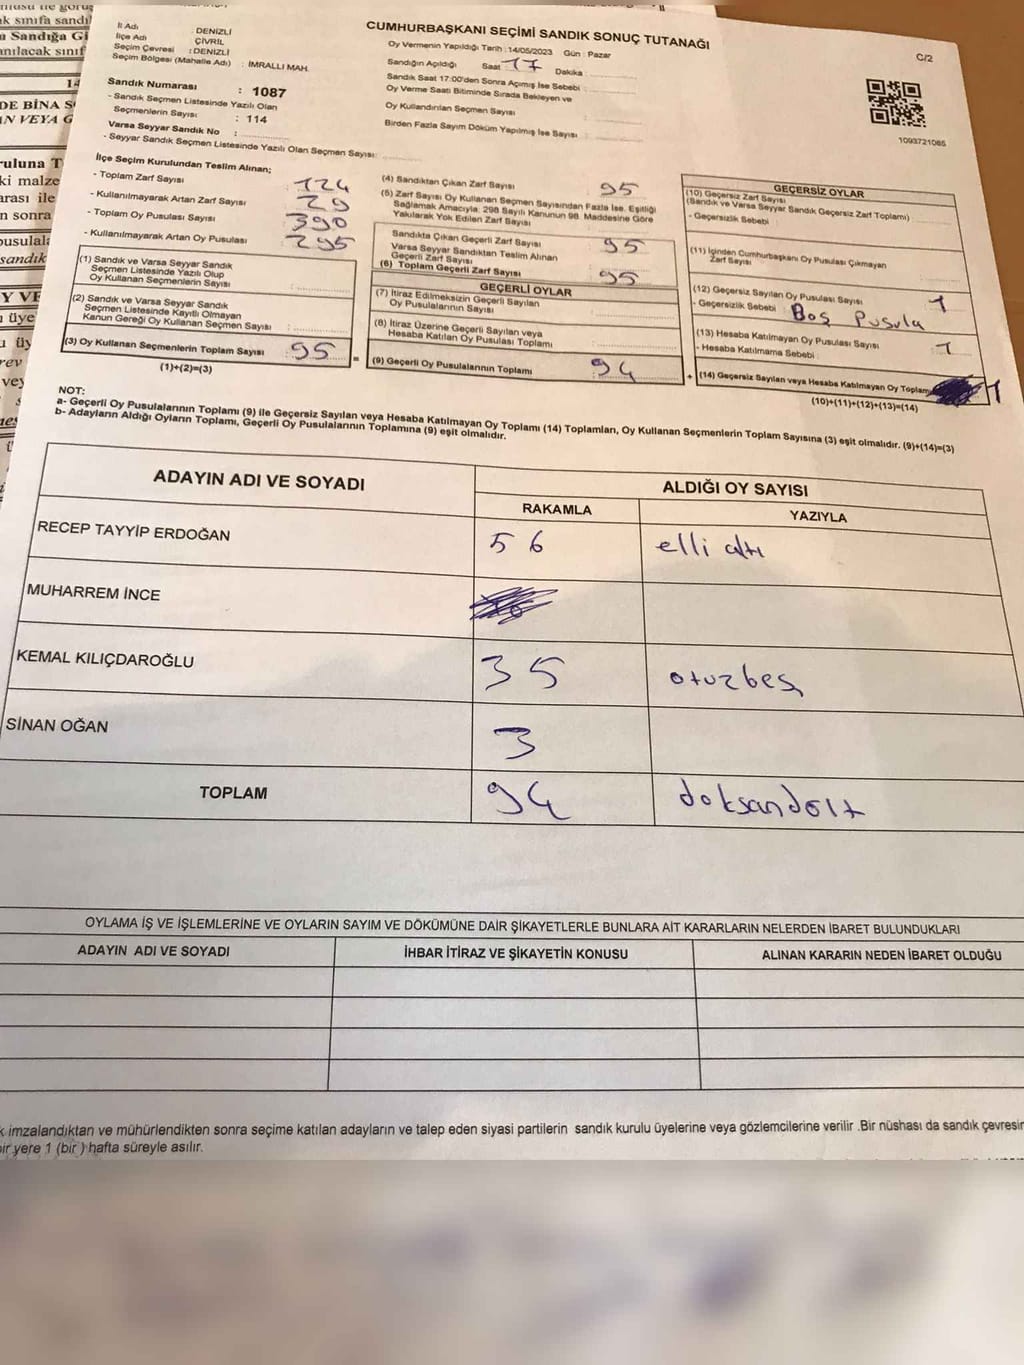 ak sınıfa sandı
a Sandığa Gi
anılacak sınıf
DE BİNA S
AN VEYA G
ruluna T
ki malze
arası ile
n sonra
pusulala
sandık
Y VE
ı üye
u üy
rev
vey
İl Adı : DENİZLİ
İlçe Adı : ÇİVRİL
Seçim Çevresi : DENİZLİ
Seçim Bölgesi (Mahalle Adı) : İMRALLI MAH.
CUMHURBAŞKANI SEÇİMİ SANDIK SONUÇ TUTANAĞI
C/2
Oy Vermenin Yapıldığı Tarih : 14/05/2023 Gün : Pazar
Sandığın Açıldığı Saat : 17 Dakika :
Sandık Saat 17:00'den Sonra Açımış İse Sebebi :
Oy Verme Saati Bitiminde Sırada Bekleyen ve
Oy Kullandırılan Seçmen Sayısı :
Birden Fazla Sayım Döküm Yapılmış İse Sayısı :
1093721085
Sandık Numarası : 1087
- Sandık Seçmen Listesinde Yazılı Olan
Seçmenlerin Sayısı : 114
Varsa Seyyar Sandık No :
- Seyyar Sandık Seçmen Listesinde Yazılı Olan Seçmen Sayısı:
İlçe Seçim Kurulundan Teslim Alınan;
- Toplam Zarf Sayısı : 124
- Kullanılmayarak Artan Zarf Sayısı : 29
- Toplam Oy Pusulası Sayısı : 390
- Kullanılmayarak Artan Oy Pusulası : 295
(1) Sandık ve Varsa Seyyar Sandık
Seçmen Listesinde Yazılı Olup
Oy Kullanan Seçmenlerin Sayısı :
(2) Sandık ve Varsa Seyyar Sandık
Seçmen Listesinde Kayıtlı Olmayan
Kanun Gereği Oy Kullanan Seçmen Sayısı :
(3) Oy Kullanan Seçmenlerin Toplam Sayısı : 95 =
(1)+(2)=(3)
(4) Sandıktan Çıkan Zarf Sayısı : 95
(5) Zarf Sayısı Oy Kullanan Seçmen Sayısından Fazla İse, Eşitliği
Sağlamak Amacıyla; 298 Sayılı Kanunun 98. Maddesine Göre
Yakılarak Yok Edilen Zarf Sayısı :
Sandıkta Çıkan Geçerli Zarf Sayısı : 95
Varsa Seyyar Sandıktan Teslim Alınan
Geçerli Zarf Sayısı :
(6) Toplam Geçerli Zarf Sayısı : 95
GEÇERLİ OYLAR
(7) İtiraz Edilmeksizin Geçerli Sayılan
Oy Pusulalarının Sayısı :
(8) İtiraz Üzerine Geçerli Sayılan veya
Hesaba Katılan Oy Pusulası Toplamı :
(9) Geçerli Oy Pusulalarının Toplamı : 94 +
GEÇERSİZ OYLAR
(10) Geçersiz Zarf Sayısı
(Sandık ve Varsa Seyyar Sandık Geçersiz Zarf Toplamı) :
- Geçersizlik Sebebi :
(11) İçinden Cumhurbaşkanı Oy Pusulası Çıkmayan
Zarf Sayısı :
(12) Geçersiz Sayılan Oy Pusulası Sayısı : 1
- Geçersizlik Sebebi : Boş Pusula
(13) Hesaba Katılmayan Oy Pusulası Sayısı : 1
- Hesaba Katılmama Sebebi :
(14) Geçersiz Sayılan veya Hesaba Katılmayan Oy Toplamı 1
(10)+(11)+(12)+(13)=(14)
NOT:
a- Geçerli Oy Pusulalarının Toplamı (9) ile Geçersiz Sayılan veya Hesaba Katılmayan Oy Toplamı (14) Toplamları, Oy Kullanan Seçmenlerin Toplam Sayısına (3) eşit olmalıdır. (9)+(14)=(3)
b- Adayların Aldığı Oyların Toplamı, Geçerli Oy Pusulalarının Toplamına (9) eşit olmalıdır.
ADAYIN ADI VE SOYADI
ALDIĞI OY SAYISI
RAKAMLA YAZIYLA
RECEP TAYYİP ERDOĞAN 56 elli altı
MUHARREM İNCE
KEMAL KILIÇDAROĞLU 35 otuzbeş
SİNAN OĞAN 3
TOPLAM 94 doksandört
OYLAMA İŞ VE İŞLEMLERİNE VE OYLARIN SAYIM VE DÖKÜMÜNE DAİR ŞİKAYETLERLE BUNLARA AİT KARARLARIN NELERDEN İBARET BULUNDUKLARI
ADAYIN ADI VE SOYADI İHBAR İTİRAZ VE ŞİKAYETİN KONUSU ALINAN KARARIN NEDEN İBARET OLDUĞU
k imzalandıktan ve mühürlendikten sonra seçime katılan adayların ve talep eden siyasi partilerin sandık kurulu üyelerine veya gözlemcilerine verilir .Bir nüshası da sandık çevresin
bir yere 1 (bir ) hafta süreyle asılır.